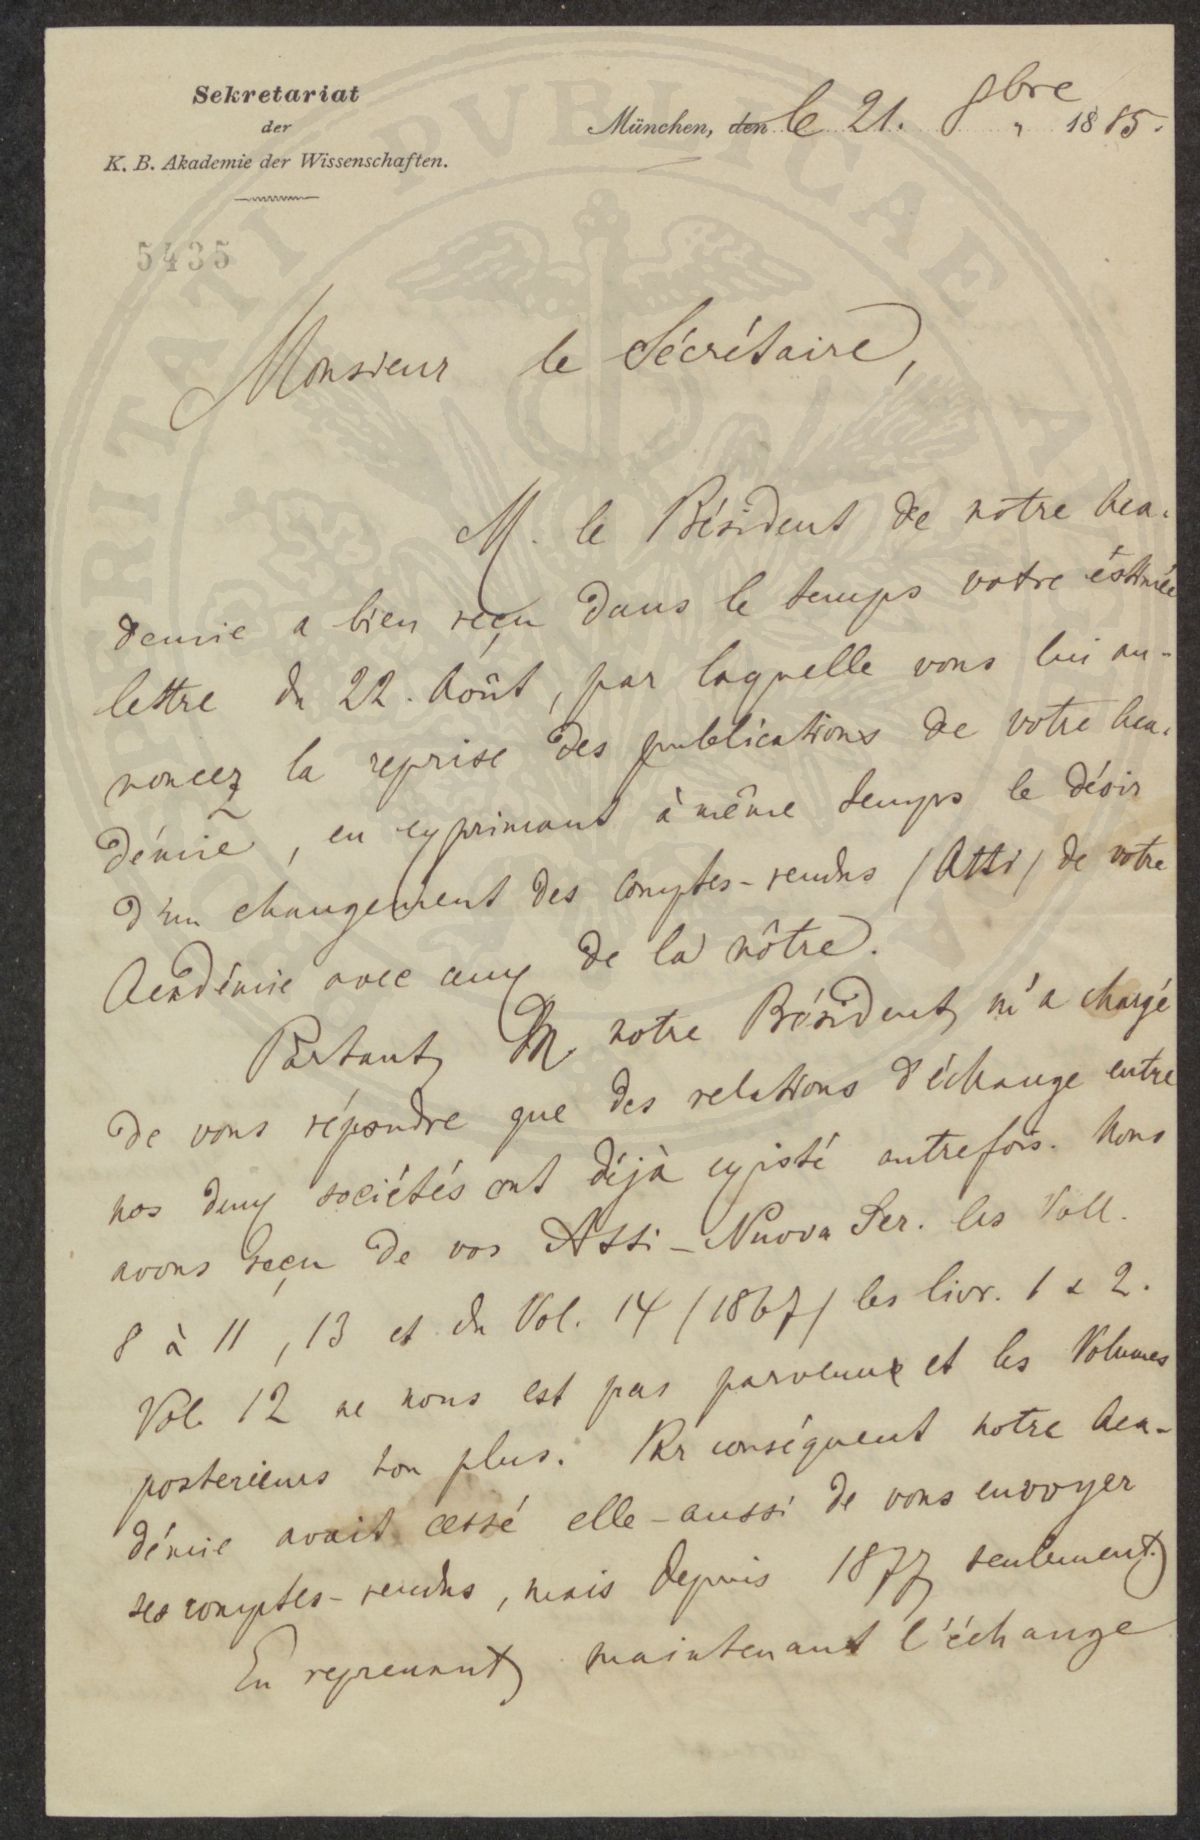 Sekretariat
der
K. B. Akademie der Wissenschaften.
München, den le 21. 8bre 1885.
5435
Monsieur le Sécrétaire,
M. le Président de notre Aca-
demie a bien reçu dans le temps votre éstimée
lettre du 22. Août, par laquelle vous lui an-
noncez la reprise des publications de votre Aca-
démie, en exprimant à même temps le désir
d'un changement des comptes-rendus (Atti) de votre
Académie avec ceux de la nôtre.
Partant, notre Président, m'a chargé
de vous répondre que des relations d'échange entre
nos deux sociétés ont déjà existé autrefois. Nous
avons reçu de vos Atti - Nuova Ser. les Voll.
8 à 11, 13 et du Vol. 14 (1867) les livr. 1 & 2.
Vol. 12 ne nous est pas parvenu et les Volumes
posterieurs non plus. Par conséquent notre Aca-
démie avait cessé elle-aussi de vous envoyer
ses comptes-rendus, mais depuis 1877 seulement.
En reprenant, maintenant l'échange